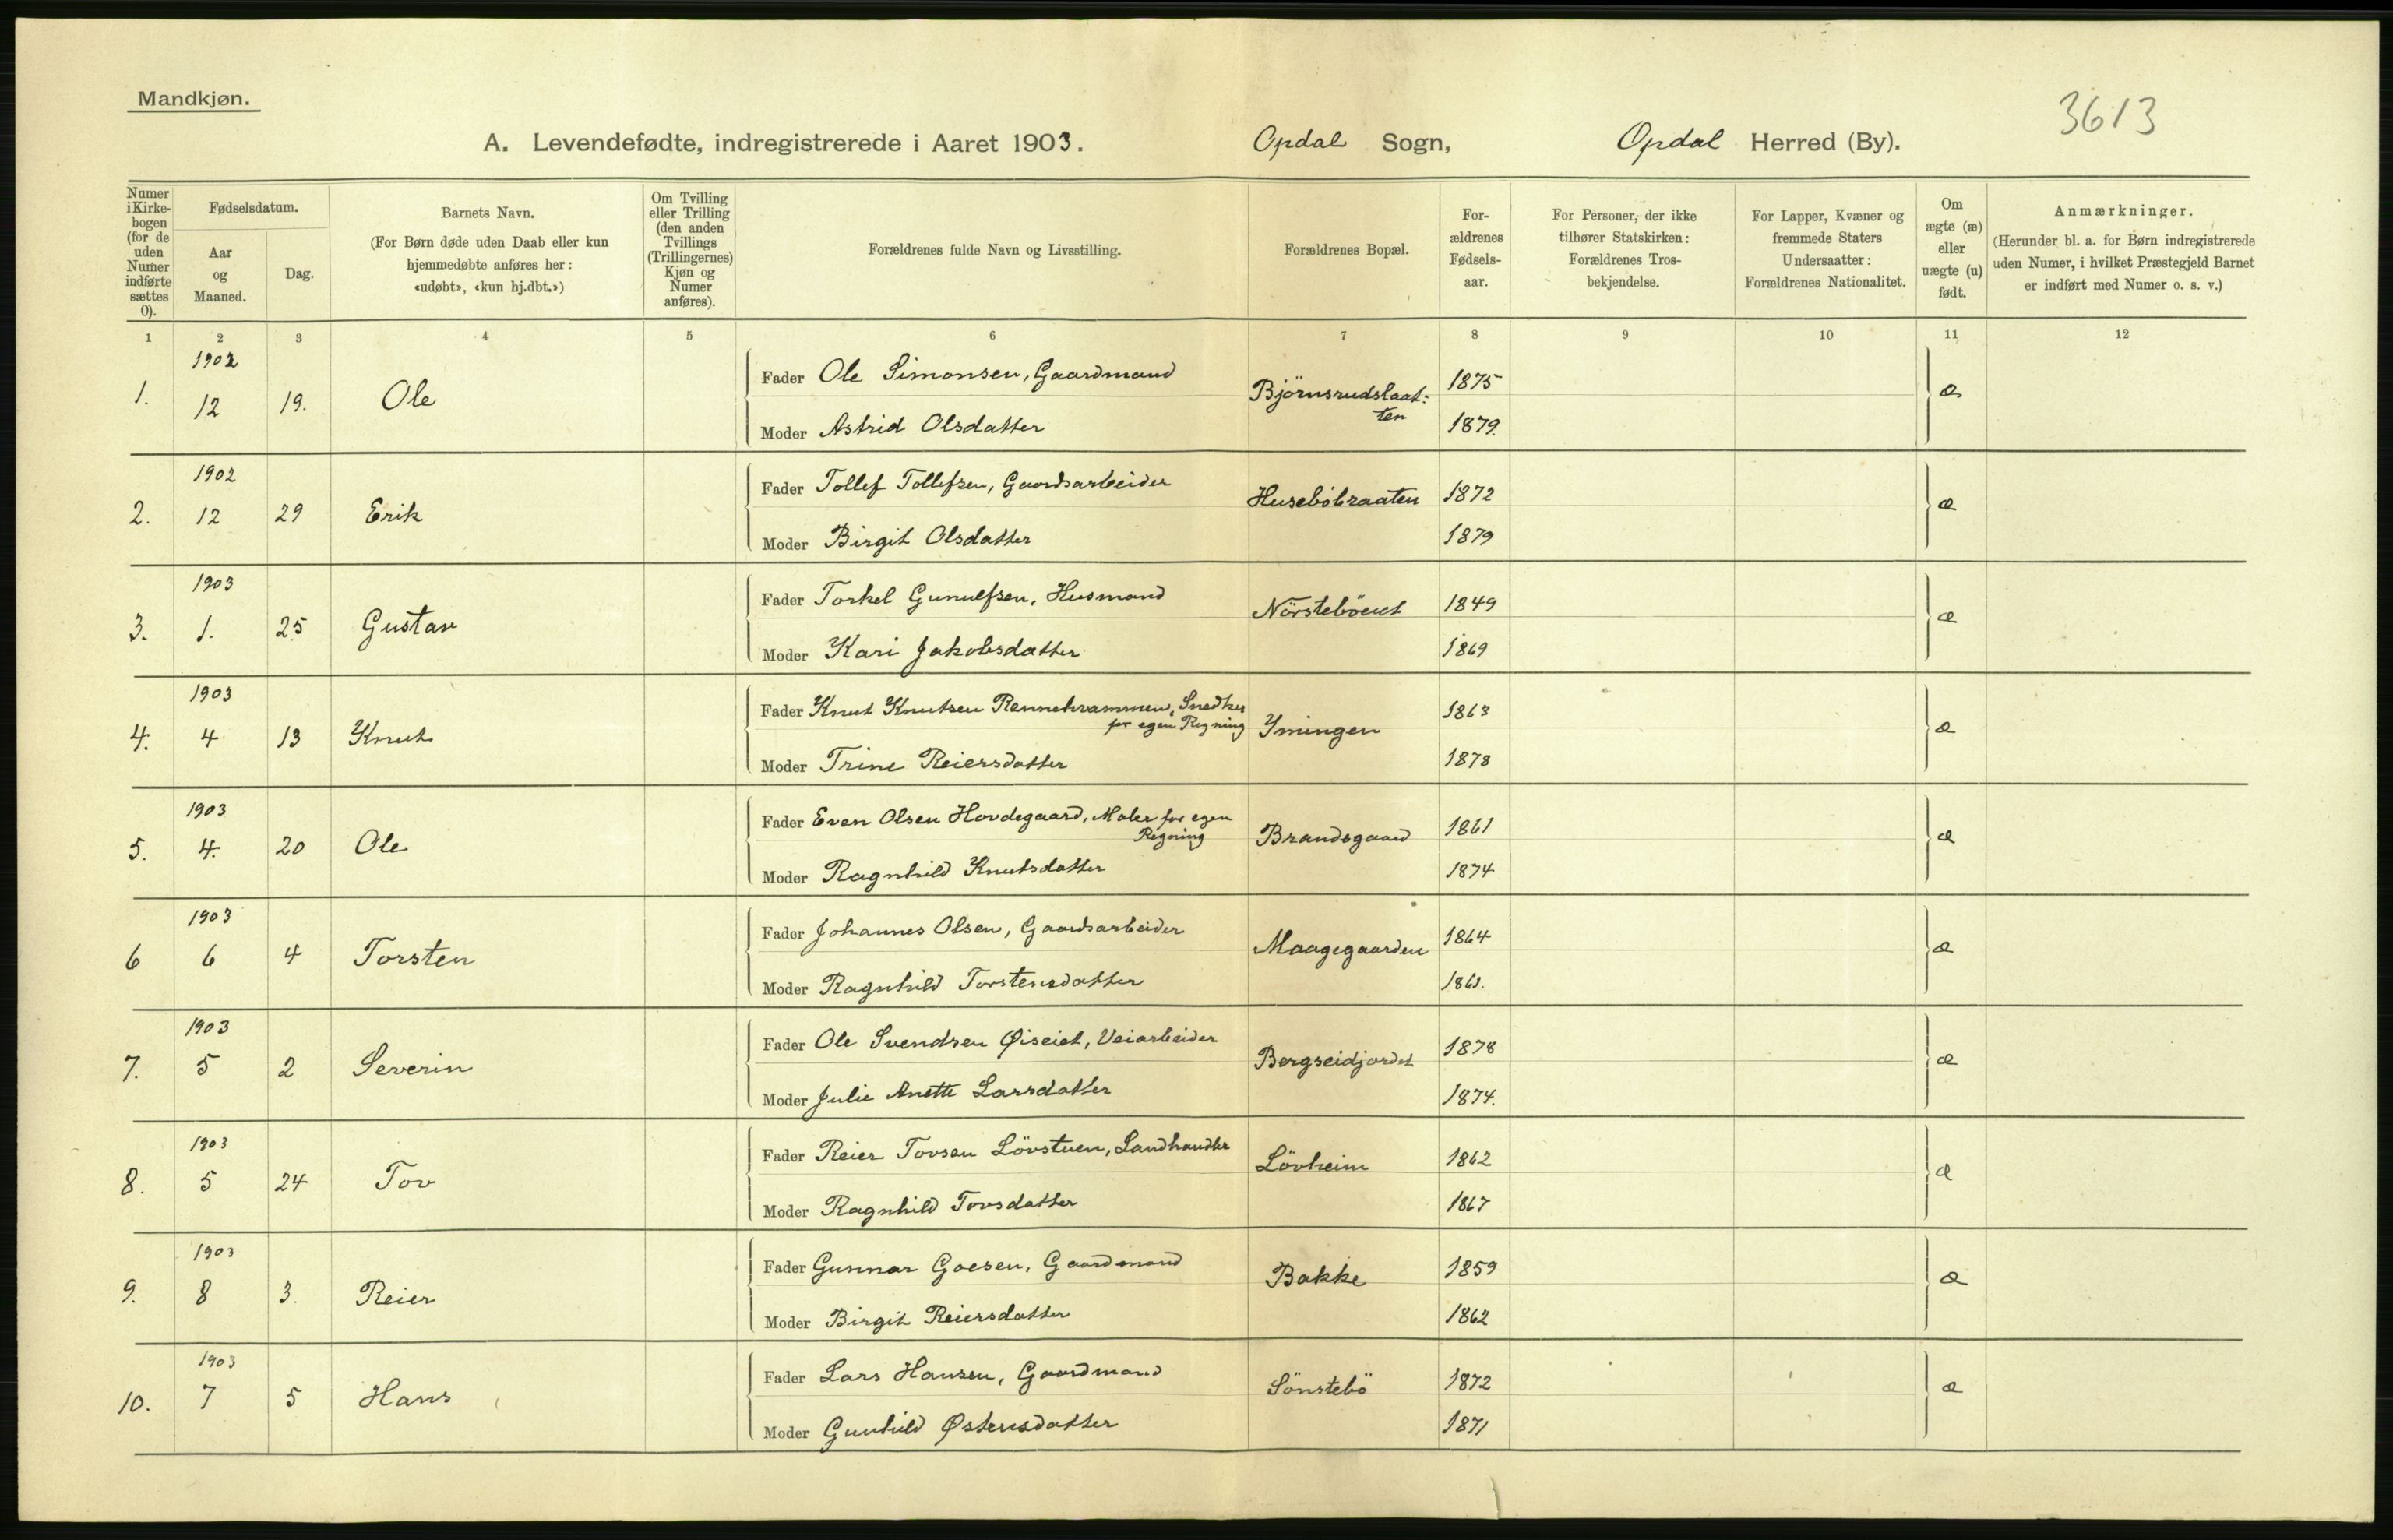 Mandkjøn.
3613
A. Levendefødte, indregistrerede i Aaret 1903. Opdal Sogn, Opdal Herred (By).
Numer i Kirke-bogen (for de uden Numer indførte sættes 0).
Fødselsdatum.
Aar og Maaned.
Dag.
Barnets Navn.
(For Børn døde uden Daab eller kun hjemmedøbte anføres her: «udøbt», «kun hj.dbt.»)
Om Tvilling eller Trilling (den anden Tvillings (Trillingernes) Kjøn og Numer anføres).
Forældrenes fulde Navn og Livsstilling.
Forældrenes Bopæl.
For-ældrenes Fødsels-aar.
For Personer, der ikke tilhører Statskirken: Forældrenes Tros-bekjendelse.
For Lapper, Kvæner og fremmede Staters Undersaatter: Forældrenes Nationalitet.
Om ægte (æ) eller uægte (u) født.
Anmærkninger.
(Herunder bl. a. for Børn indregistrerede uden Numer, i hvilket Præstegjeld Barnet er indført med Numer o. s. v.)
1 2 3 4 5 6 7 8 9 10 11 12
1902
1. 12 19. Ole Fader Ole Simonsen, Gaardmand Björnsrudslaat:ten 1875 æ
Moder Astrid Olsdatter 1879.
1902
2. 12 29 Erik Fader Tollef Tollefsen, Gaardsarbeider Huseböbraaten 1872 æ
Moder Birgit Olsdatter 1879
1903
3. 1. 25 Gustav Fader Torkel Gunulfsen, Husmand Nörsteböeiet 1849 æ
Moder Kari Jakobsdatter 1869
1903
4. 4 13 Knut Fader Knut Knutsen Rennehvammen, Snedker for egen Regning Ymingen 1863 æ
Moder Trine Reiersdatter 1878
1903
5. 4. 20 Ole Fader Even Olsen Hovdegaard, Maler for egen Regning Brandsgaard 1861 æ
Moder Ragnhild Knutsdatter 1874
1903
6 6 4 Torsten Fader Johannes Olsen, Gaardsarbeider Maagegaarden 1864 æ
Moder Ragnhild Torstensdatter
1903
7. 5 2 Severin Fader Ole Svendsen Øiseiet, Veiarbeider Bergseidjordet 1878 æ
Moder Julie Anette Larsdatter 1874.
1903
8. 5 24 Tov Fader Reier Tovsen Lövstuen, Landhandler Lövheim 1862 æ
Moder Ragnhild Tovsdatter 1867
1903
9. 8 3. Reier Fader Gunnar Goesen, Gaardmand Bakke 1859 æ
Moder Birgit Reiersdatter 1862
1903
10. 7 5 Hans Fader Lars Hansen, Gaardmand Sönstebö 1872 æ
Moder Gunhild Østensdatter 1871